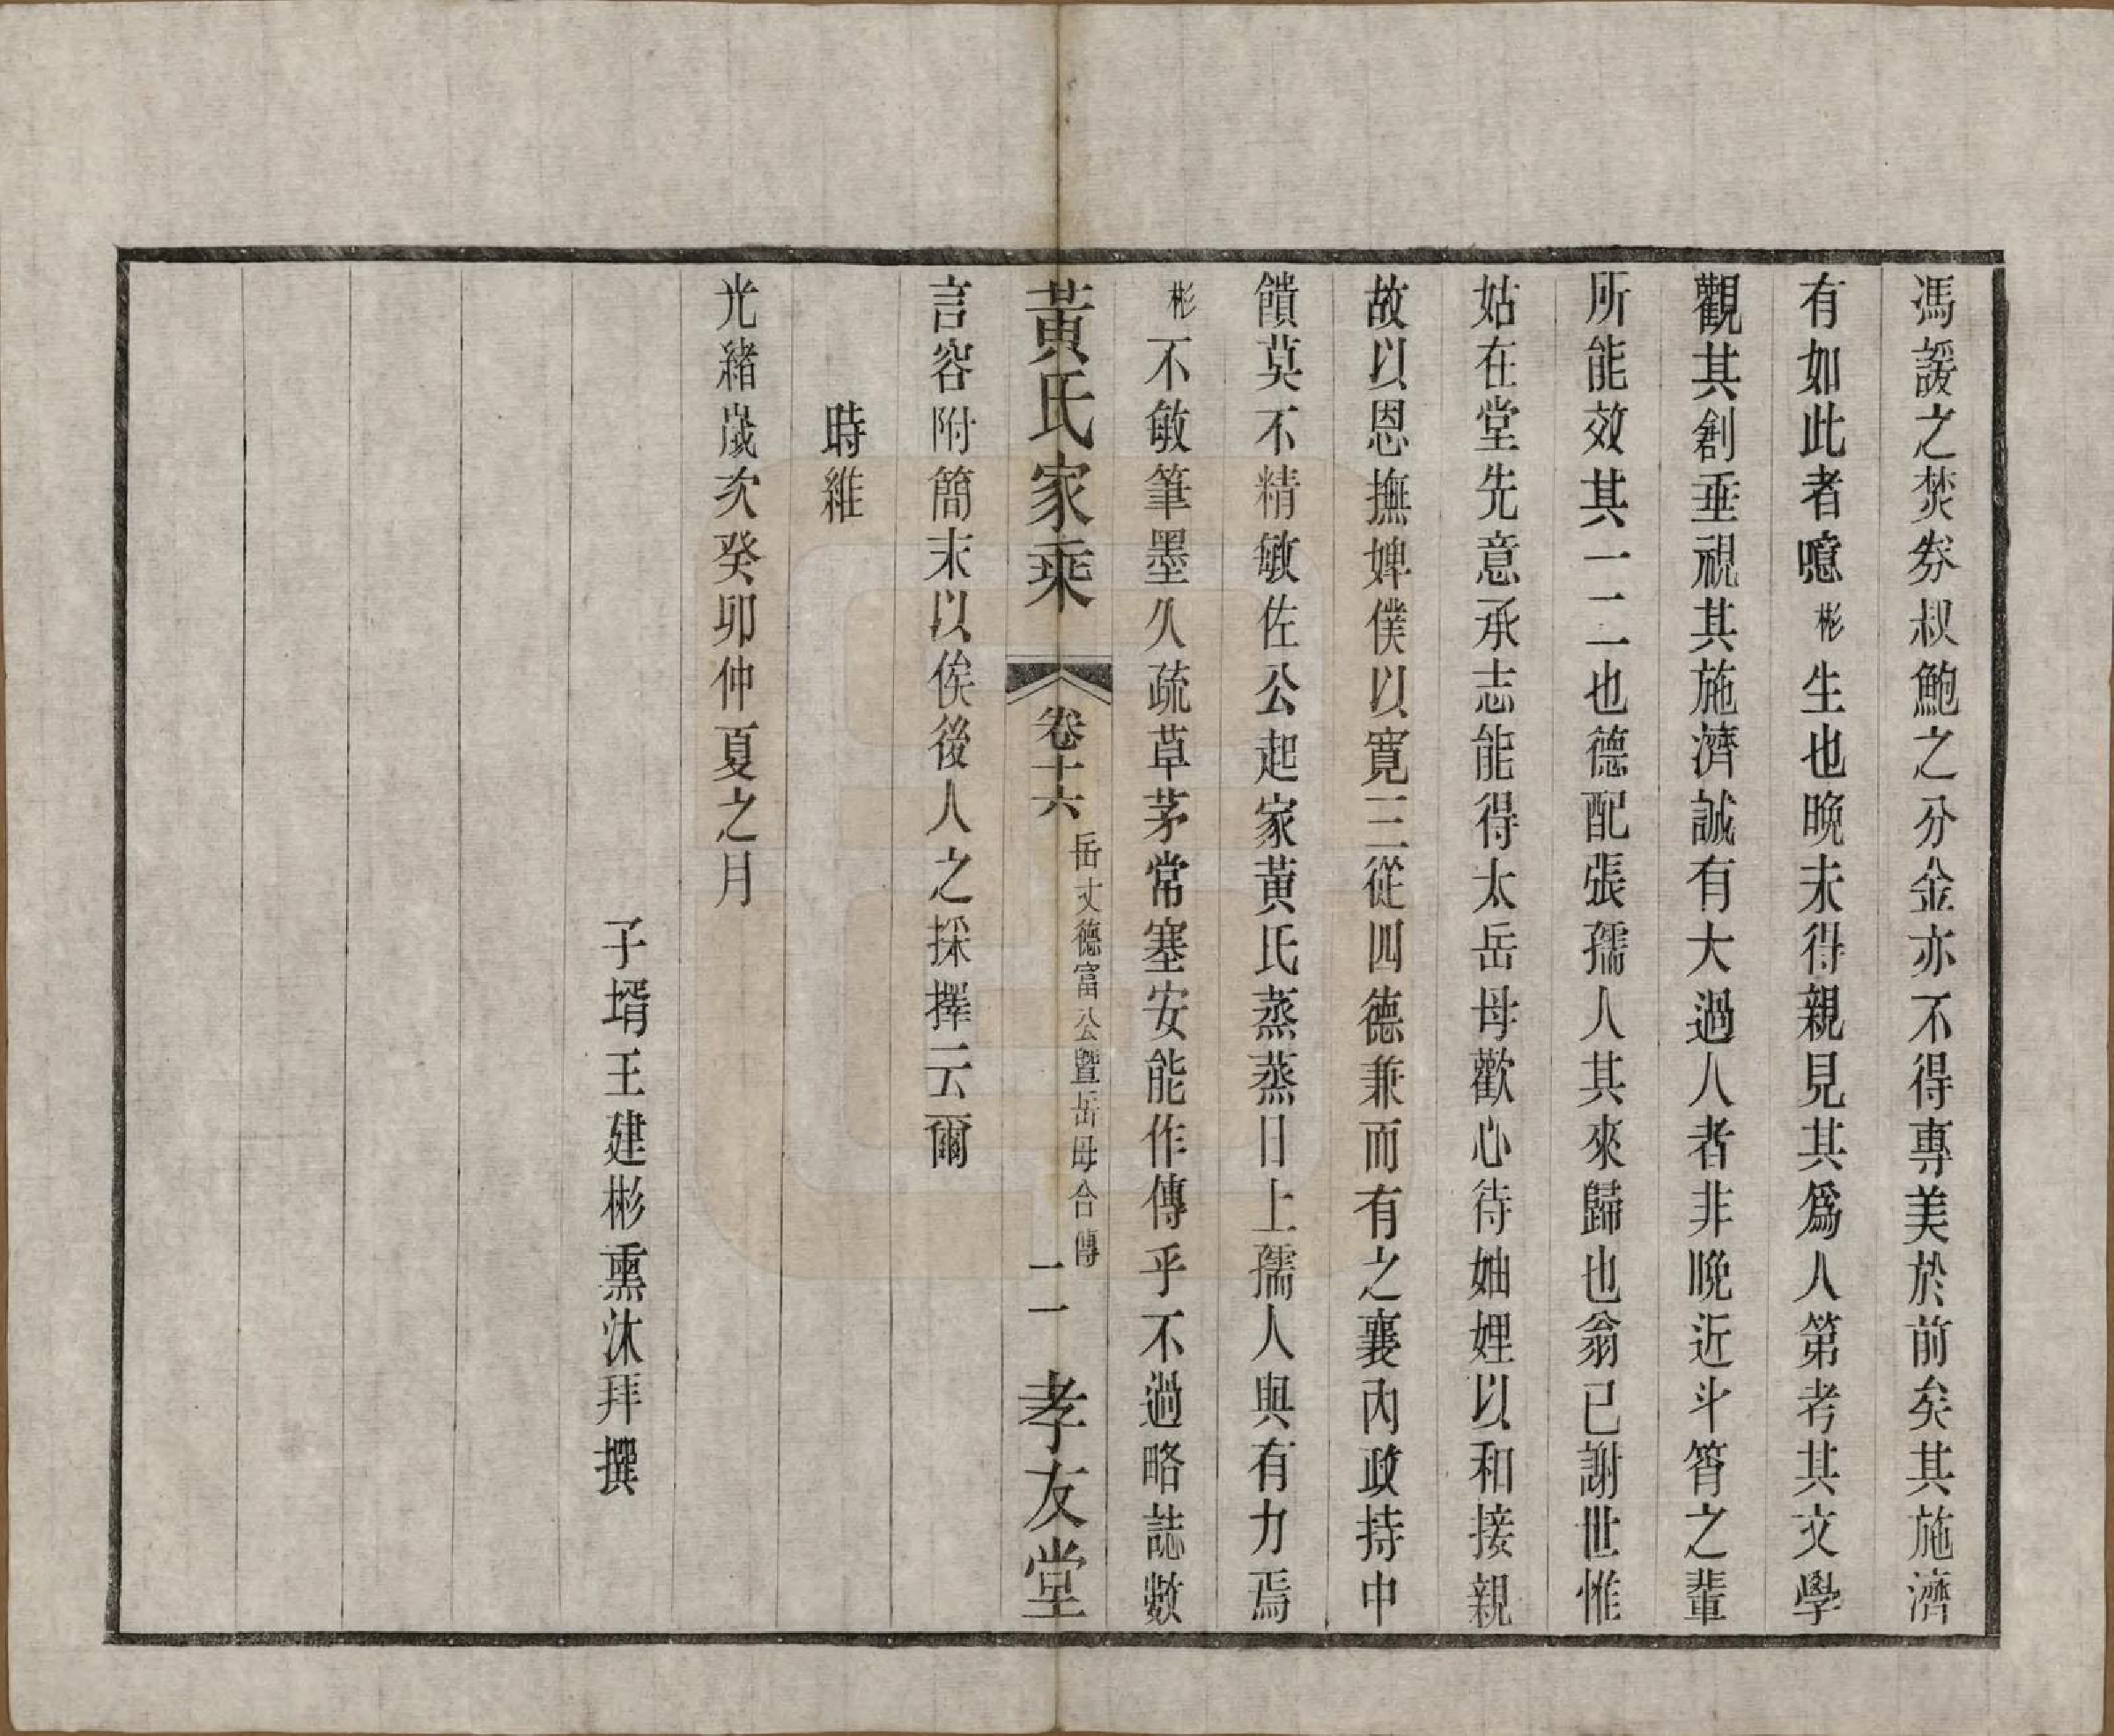 馮諼之焚券叔鮑之分金亦不得專美於前矣其施濟
有如此者噫彬生也晚未得親見其爲人第考其文學
觀其創垂視其施濟誠有大過人者非晚近斗筲之輩
所能效其一二也德配張孺人其來歸也翁已謝世惟
姑在堂先意承志能得太岳母歡心待妯娌以和接親
故以恩撫婢僕以寬三從四德兼而有之襄內政持中
饋莫不精敏佐公起家黃氏蒸蒸日上孺人與有力焉
彬不敏筆墨久疏草茅常塞安能作傳乎不過略誌數
黃氏家乘 卷十六 岳丈德富公曁岳母合傳 二 孝友堂
言容附簡末以俟後人之採擇云爾
時維
光緒歲次癸卯仲夏之月
子壻王建彬熏沐拜撰